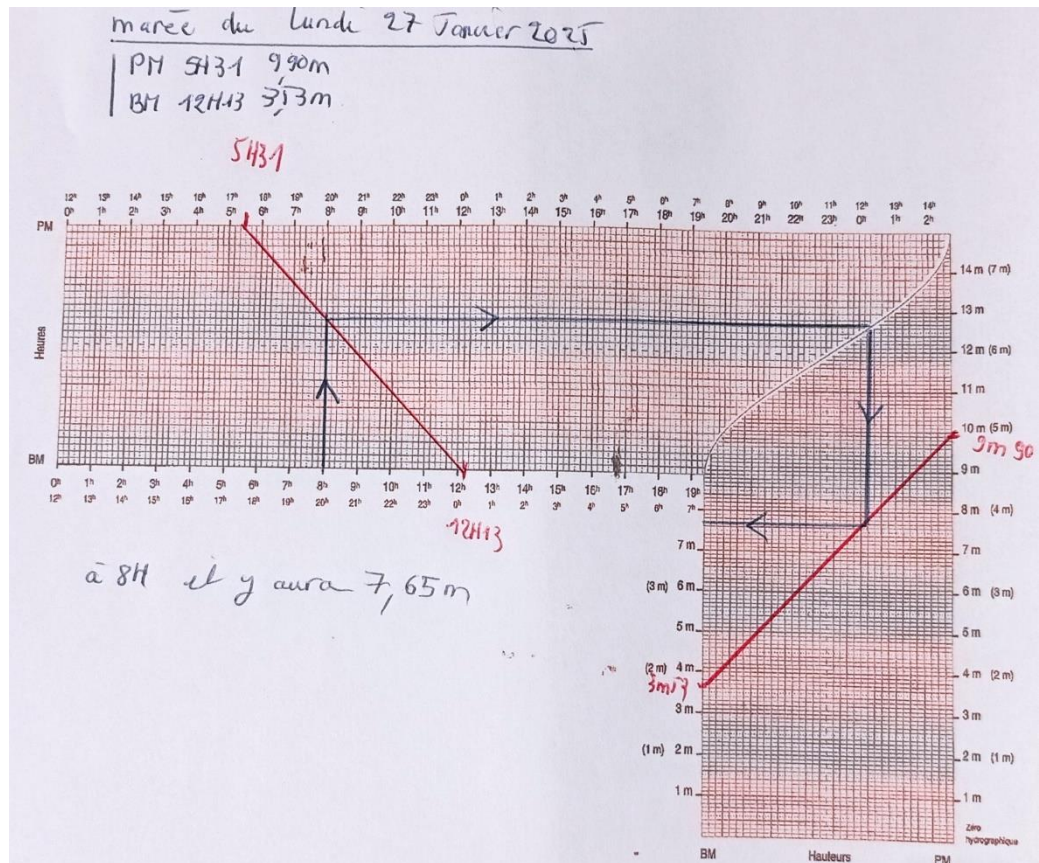 marée du Lundi 27 Janvier 2025
PM 5H31 9,90m
BM 12H13 3,53m
5H31
12h 13h 14h 15h 16h 17h 18h 19h 20h 21h 22h 23h 0h 1h 2h 3h 4h 5h 6h 7h 8h 9h 10h 11h 12h 13h 14h
0h 1h 2h 3h 4h 5h 6h 7h 8h 9h 10h 11h 12h 13h 14h 15h 16h 17h 18h 19h 20h 21h 22h 23h 0h 1h 2h
PM
14 m (7 m)
13 m
Heures
12 m (6 m)
11 m
10 m (5 m)
9m90
BM
9 m
0h 1h 2h 3h 4h 5h 6h 7h 8h 9h 10h 11h 12h 13h 14h 15h 16h 17h 18h 19h
12h 13h 14h 15h 16h 17h 18h 19h 20h 21h 22h 23h 0h 1h 2h 3h 4h 5h 6h 7h
8 m (4 m)
12H13
7 m
7 m
à 8H il y aura 7,65m
(3 m) 6 m
6 m (3 m)
5 m
5 m
(2 m) 4 m
4 m (2 m)
3 m
3 m
(1 m) 2 m
2 m (1 m)
1 m
1 m
Zéro
hydrographique
BM Hauteurs PM